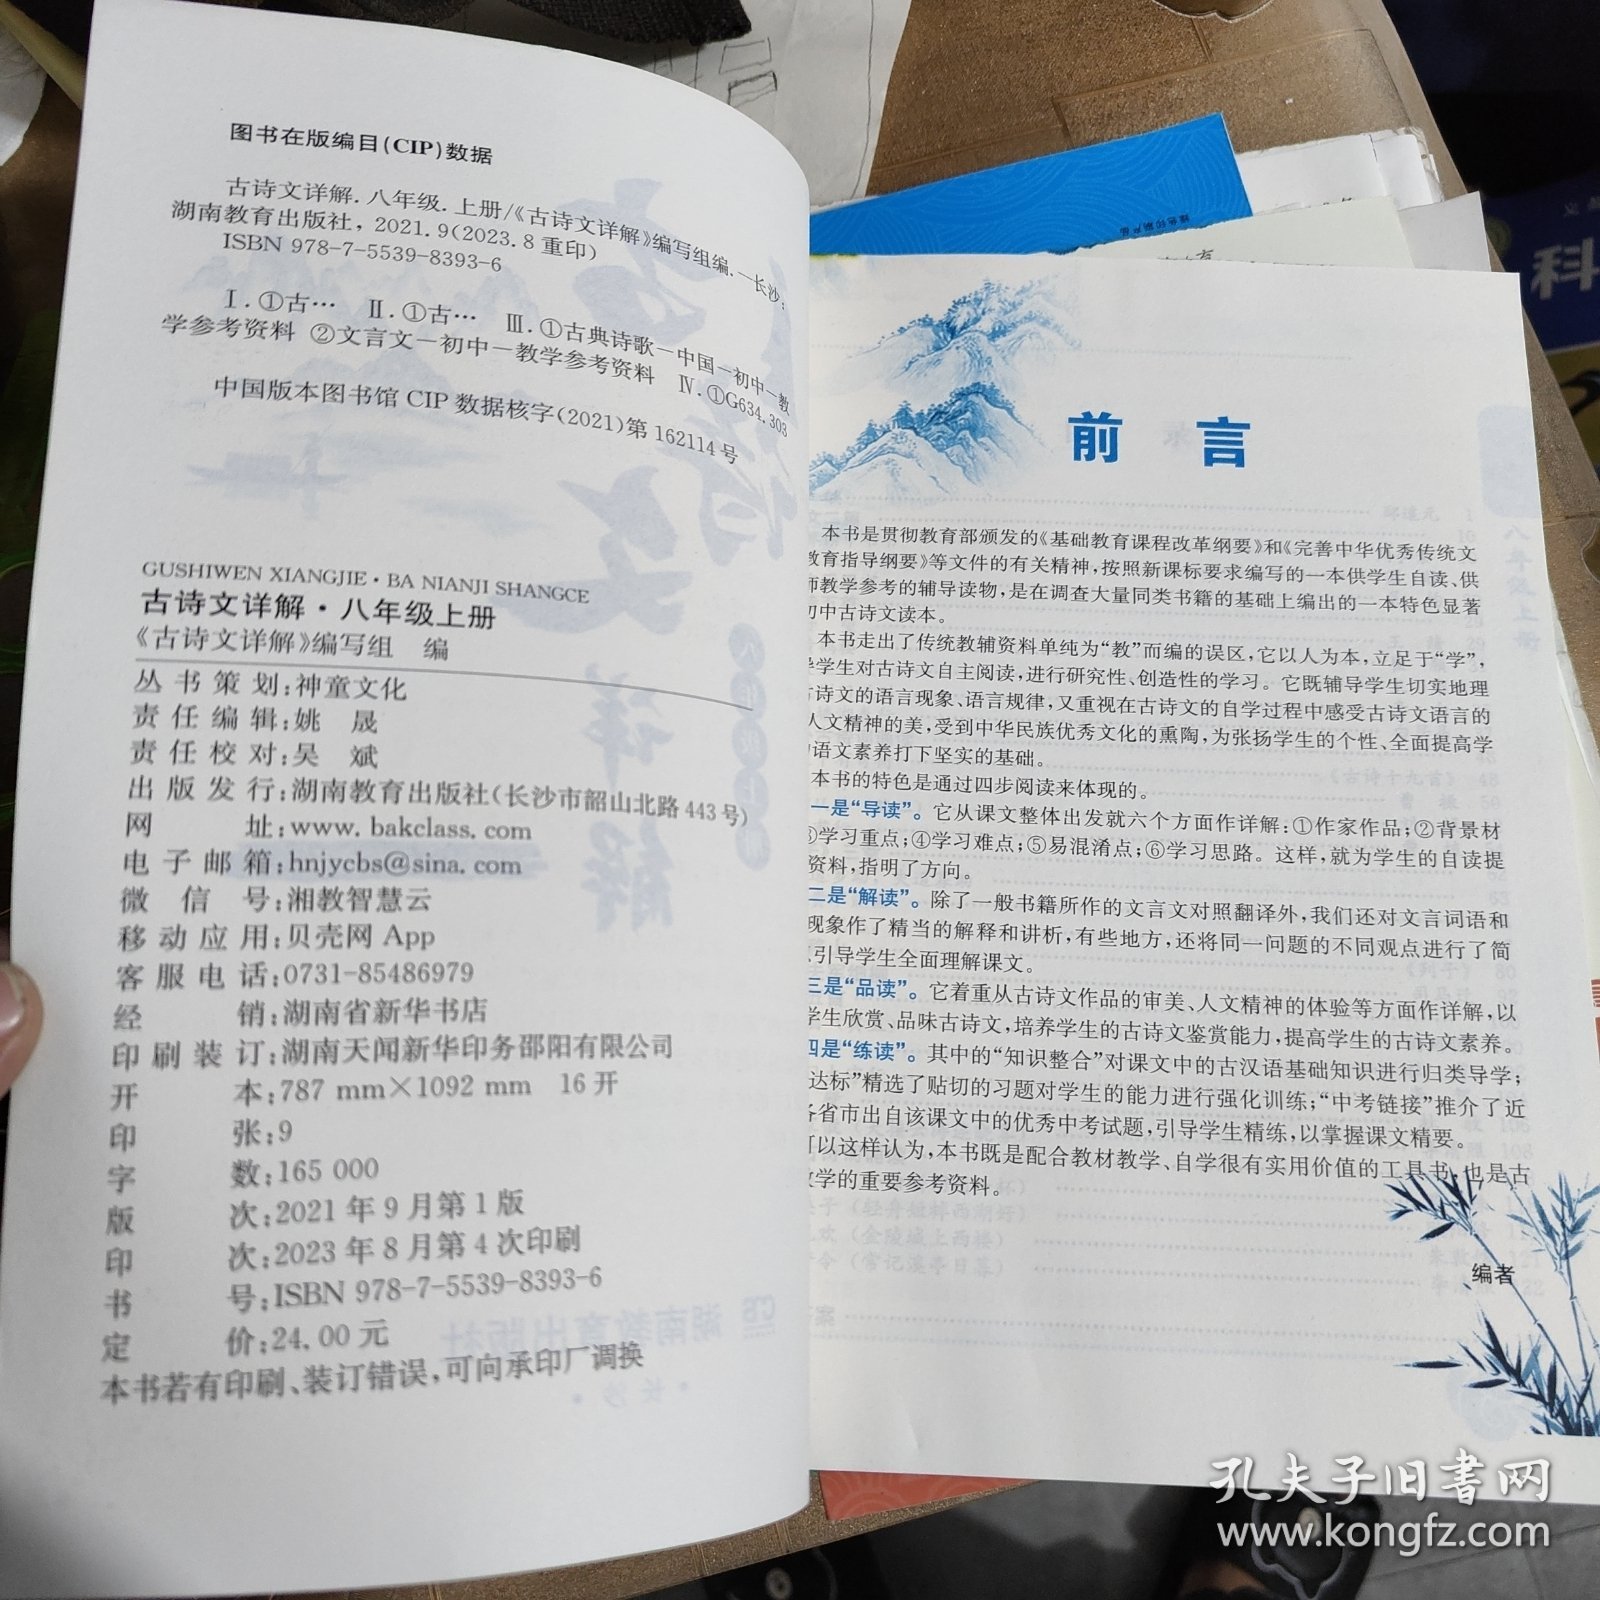 图书在版编目(CIP)数据
古诗文详解.八年级.上册/《古诗文详解》编写组编.—长沙:
湖南教育出版社, 2021.9(2023.8重印)
ISBN 978-7-5539-8393-6
Ⅰ.①古… Ⅱ.①古… Ⅲ.①古典诗歌－中国－初中－教
学参考资料 ②文言文－初中－教学参考资料 Ⅳ.①G634.303
中国版本图书馆CIP数据核字(2021)第162114号
GUSHIWEN XIANGJIE·BA NIANJI SHANGCE
古诗文详解·八年级上册
《古诗文详解》编写组 编
丛书策划:神童文化
责任编辑:姚 晟
责任校对:吴 斌
出版发行:湖南教育出版社(长沙市韶山北路443号)
网 址:www.bakclass.com
电子邮箱:hnjycbs@sina.com
微信号:湘教智慧云
移动应用:贝壳网App
客服电话:0731-85486979
经 销:湖南省新华书店
印刷装订:湖南天闻新华印务邵阳有限公司
开 本:787 mm×1092 mm 16开
印 张:9
字 数:165 000
版 次:2021年9月第1版
印 次:2023年8月第4次印刷
书 号:ISBN 978-7-5539-8393-6
定 价:24.00元
本书若有印刷、装订错误,可向承印厂调换
前 言
本书是贯彻教育部颁发的《基础教育课程改革纲要》和《完善中华优秀传统文
教育指导纲要》等文件的有关精神,按照新课标要求编写的一本供学生自读、供
师教学参考的辅导读物,是在调查大量同类书籍的基础上编出的一本特色显著
初中古诗文读本。
本书走出了传统教辅资料单纯为“教”而编的误区,它以人为本,立足于“学”,
导学生对古诗文自主阅读,进行研究性、创造性的学习。它既辅导学生切实地理
古诗文的语言现象、语言规律,又重视在古诗文的自学过程中感受古诗文语言的
人文精神的美,受到中华民族优秀文化的熏陶,为张扬学生的个性、全面提高学
语文素养打下坚实的基础。
本书的特色是通过四步阅读来体现的。
一是“导读”。它从课文整体出发就六个方面作详解:①作家作品;②背景材
③学习重点;④学习难点;⑤易混淆点;⑥学习思路。这样,就为学生的自读提
资料,指明了方向。
二是“解读”。除了一般书籍所作的文言文对照翻译外,我们还对文言词语和
现象作了精当的解释和讲析,有些地方,还将同一问题的不同观点进行了简
引导学生全面理解课文。
三是“品读”。它着重从古诗文作品的审美、人文精神的体验等方面作详解,以
学生欣赏、品味古诗文,培养学生的古诗文鉴赏能力,提高学生的古诗文素养。
四是“练读”。其中的“知识整合”对课文中的古汉语基础知识进行归类导学;
达标”精选了贴切的习题对学生的能力进行强化训练;“中考链接”推介了近
各省市出自该课文中的优秀中考试题,引导学生精练,以掌握课文精要。
可以这样认为,本书既是配合教材教学、自学很有实用价值的工具书,也是古
教学的重要参考资料。
编者
科
孔夫子旧书网
www.kongfz.com